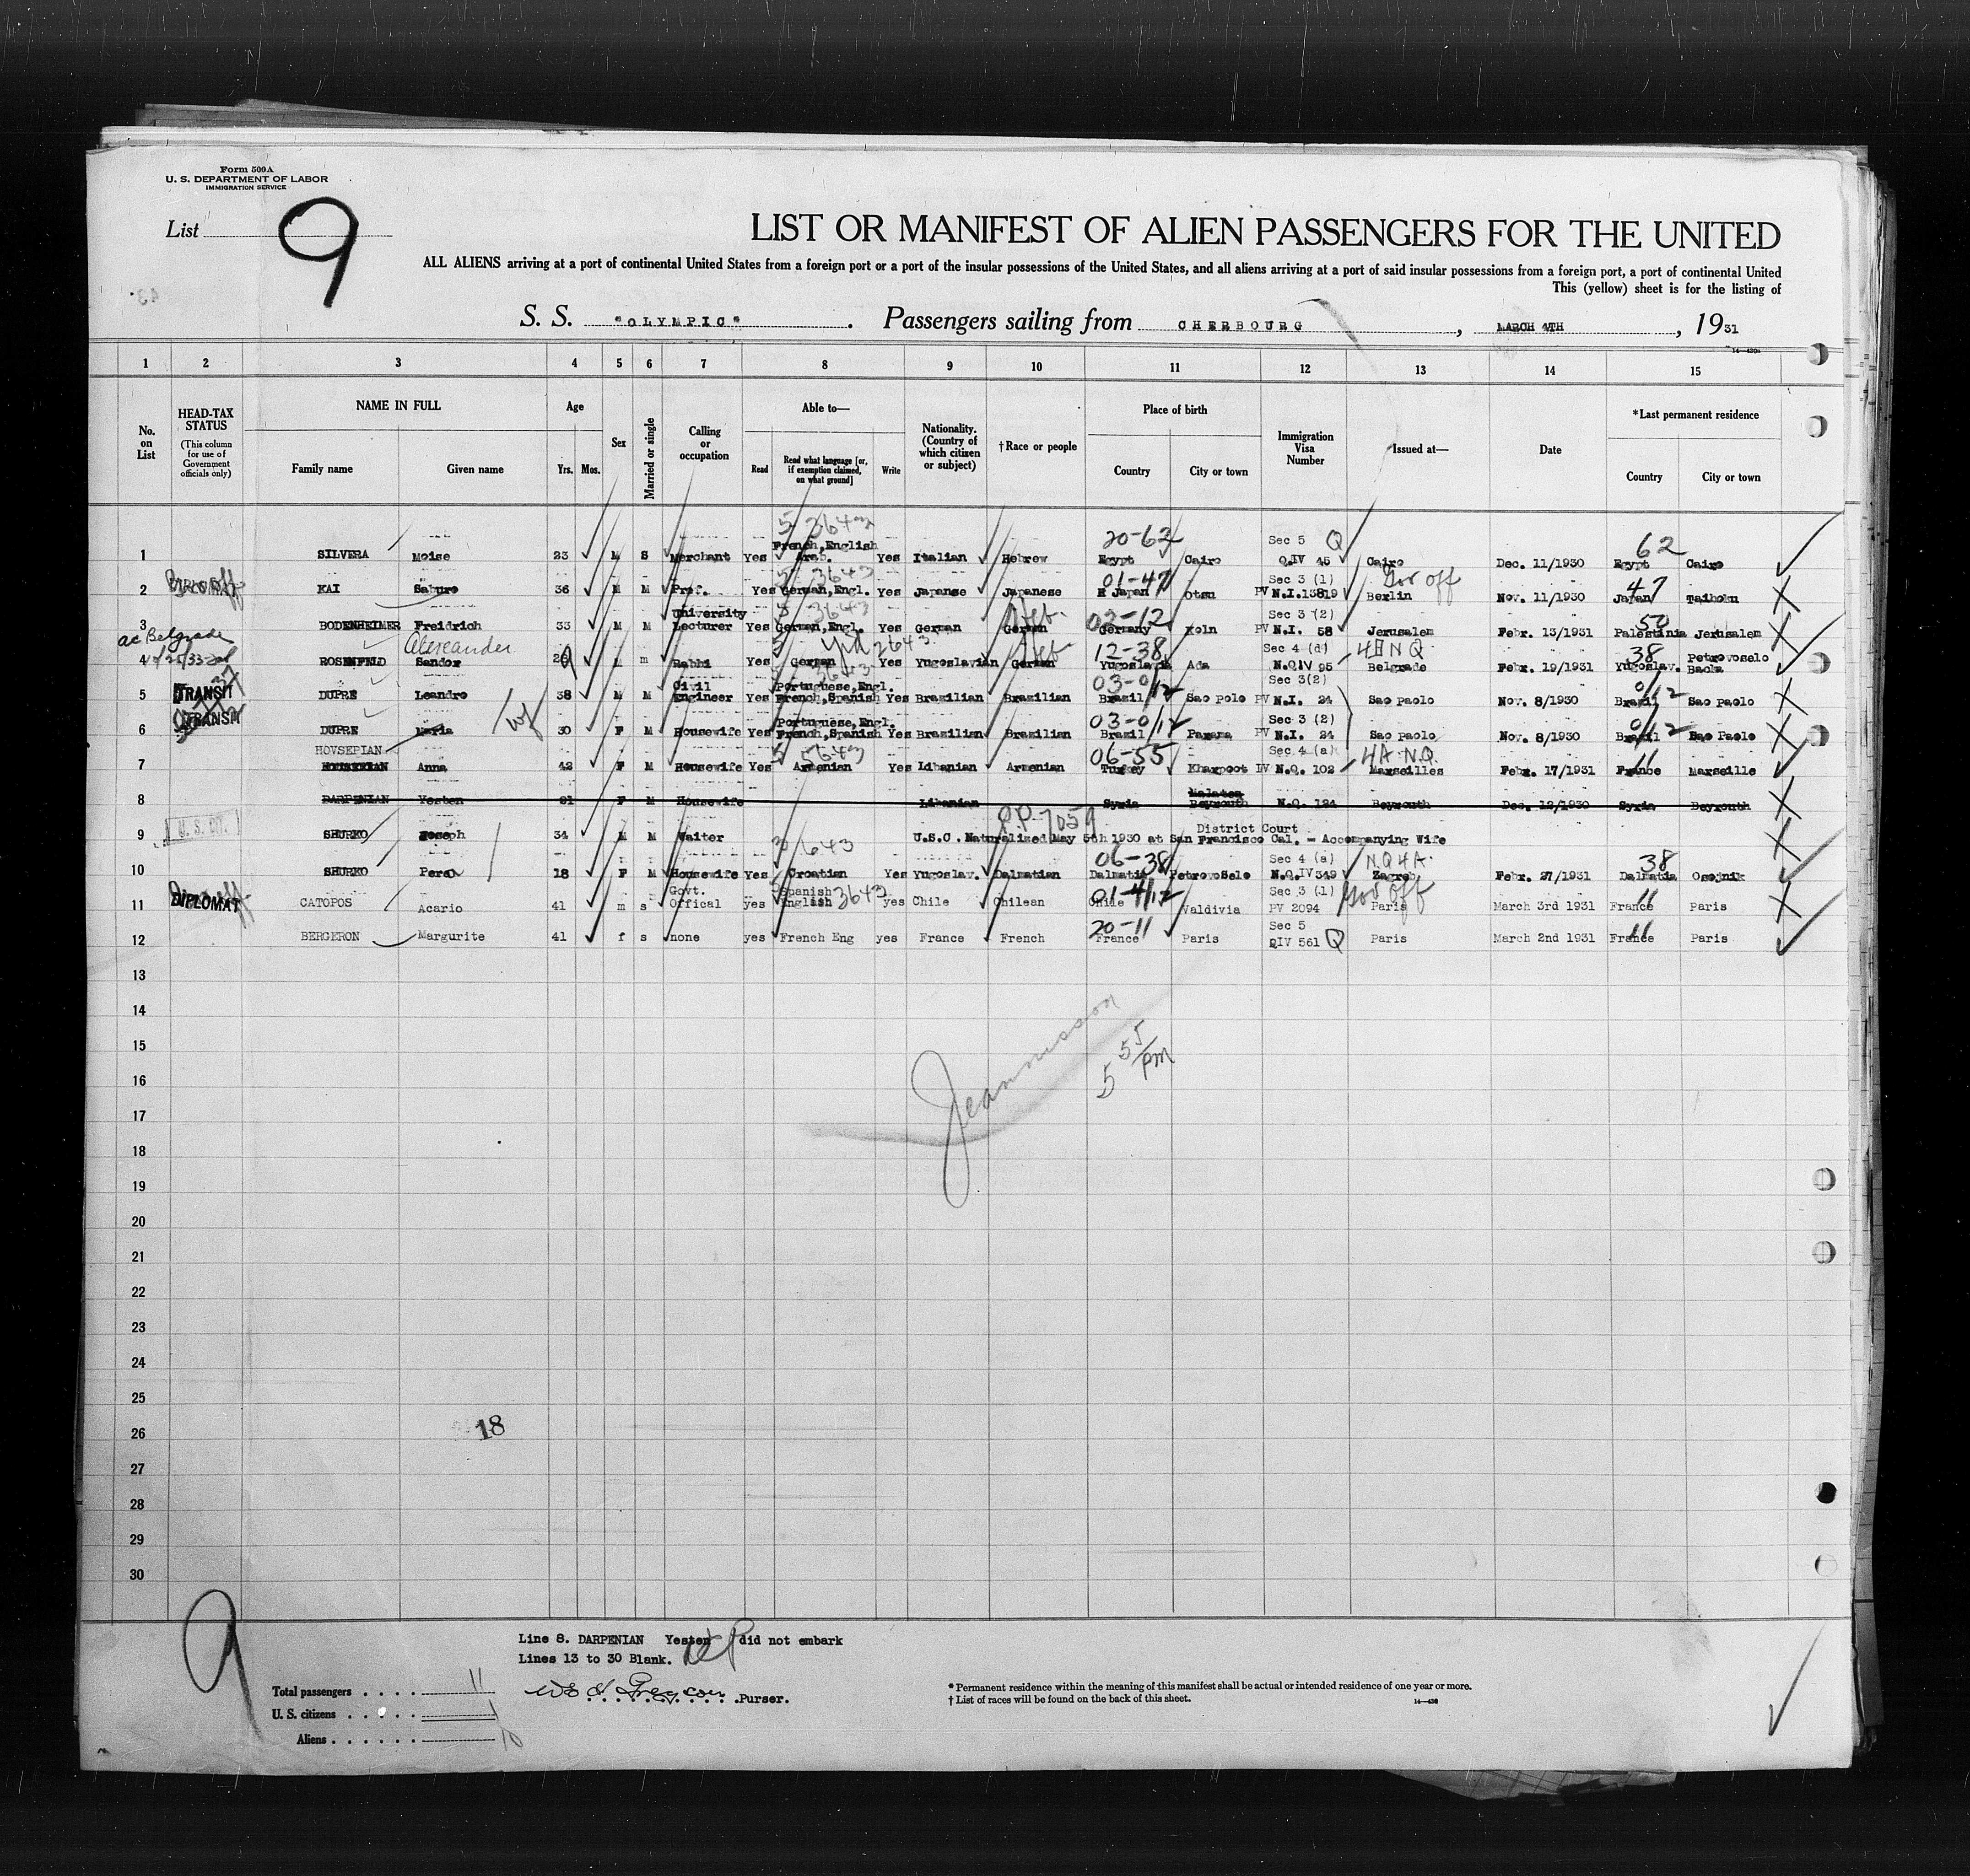 Form 500A
U. S. DEPARTMENT OF LABOR
IMMIGRATION SERVICE
List 9
LIST OR MANIFEST OF ALIEN PASSENGERS FOR THE UNITED
ALL ALIENS arriving at a port of continental United States from a foreign port or a port of the insular possessions of the United States, and all aliens arriving at a port of said insular possessions from a foreign port, a port of continental United
This (yellow) sheet is for the listing of
S. S. "OLYMPIC". Passengers sailing from CHERBOURG, MARCH 4TH, 1931
1 2 3 4 5 6 7 8 9 10 11 12 13 14 15
No. on List
HEAD-TAX STATUS (This column for use of Government officials only)
NAME IN FULL Family name Given name
Age Yrs. Mos.
Sex
Married or single
Calling or occupation
Able to— Read Read what language [or, if exemption claimed, on what ground] Write
Nationality. (Country of which citizen or subject)
†Race or people
Place of birth Country City or town
Immigration Visa Number
Issued at—
Date
*Last permanent residence Country City or town
5 3643 20-62 Sec 5 Q 62
1 SILVERA Moise 23 M S Merchant Yes French,English Arab. Yes Italian Hebrew Egypt Cairo Q.IV 45 Cairo Dec. 11/1930 Egypt Cairo
3643 01-47 Sec 3 (1) Gov off 47
2 KAI Saburo 36 M M Prof. Yes German,Engl. Yes Japanese Japanese Japan Otsu PV N.I.13819 Berlin Nov. 11/1930 Japan Taihoku
3643 Heb. 03-12 Sec 3 (2) 50
3 BODENHEIMER Freidrich 33 M M University Lecturer Yes German,Engl. Yes German German Germany Koln PV N.I. 58 Jerusalem Febr. 13/1931 Palestinia Jerusalem
ac Belgrade Alexander Heb 12-38 Sec 4 (d) NQ 38
4 ROSENFELD Sandor m Rabbi Yes German Yes Yugoslavian German Yugoslavia Ada N.QIV 95 Belgrade Febr. 19/1931 Yugoslav. Petrovoselo Backa
TRANSIT 03-0/12 Sec 3(2) 0/12
5 DUPRE Leandro 38 M M Civil Engineer Yes Portuguese,Engl. French,Spanish Yes Brazilian Brazilian Brazil Sao Polo PV N.I. 24 Sao Paolo Nov. 8/1930 Brazil Sao Paolo
TRANSIT wf 03-0/12 Sec 3 (2) 0/12
6 DUPRE Maria 30 F M Housewife Yes Portuguese,Engl. French,Spanish Yes Brazilian Brazilian Brazil Parana PV N.I. 24 Sao Paolo Nov. 8/1930 Brazil Sao Paolo
HOVSEPIAN 5 5643 06-55 Sec 4 (a) 4A N.Q. 11
7 Anna 42 F M Housewife Yes Armenian Yes Libanian Armenian Turkey Kharpoot IV N.Q. 102 Marseilles Febr. 17/1931 France Marseille
8 DARPENIAN Yesten 61 F M Housewife Libanian Syria Malatea Beyrouth N.Q. 124 Beyrouth Dec. 12/1930 Syria Beyrouth
U. S. CIT. P.P. 7059 District Court
9 SHURKO Joseph 34 M M Waiter U.S.C. Naturalized May 5th 1930 at San Francisco Cal. - Accompanying Wife
643 06-38 Sec 4 (a) N.Q 4A. 38
10 SHURKO Pera 18 F M Housewife Yes Croatian Yes Yugoslav. Dalmatian Dalmatia PetrovoSelo N.Q.IV349 Zagreb Febr. 27/1931 Dalmatia Osojnik
DIPLOMAT 3643 Sec 3 (1) Gov off 11
11 CATOPOS Acario 41 m s Govt. Offical yes Spanish English yes Chile Chilean Chile Valdivia PV 2094 Paris March 3rd 1931 France Paris
20-11 Sec 5 Q 11
12 BERGERON Margurite 41 f s none yes French Eng yes France French France Paris QIV 561 Paris March 2nd 1931 France Paris
13
14
15
16
17
18
19
20
21
22
23
24
25
26
27
28
29
30
5 55/pm
18
9
Line 8. DARPENIAN Yesten did not embark
Lines 13 to 30 Blank.
Purser.
Total passengers . . . . 11
U. S. citizens . . . . . 1
Aliens . . . . . . 10
* Permanent residence within the meaning of this manifest shall be actual or intended residence of one year or more.
† List of races will be found on the back of this sheet.
14—430